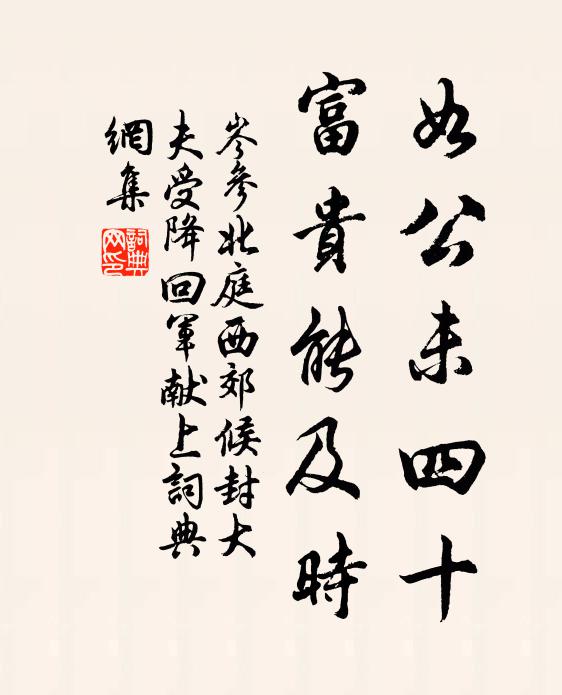 如公未四十
富貴能及時
岑參北庭西郊候封大
夫受降回軍献上詞典
網集
詞典
网印